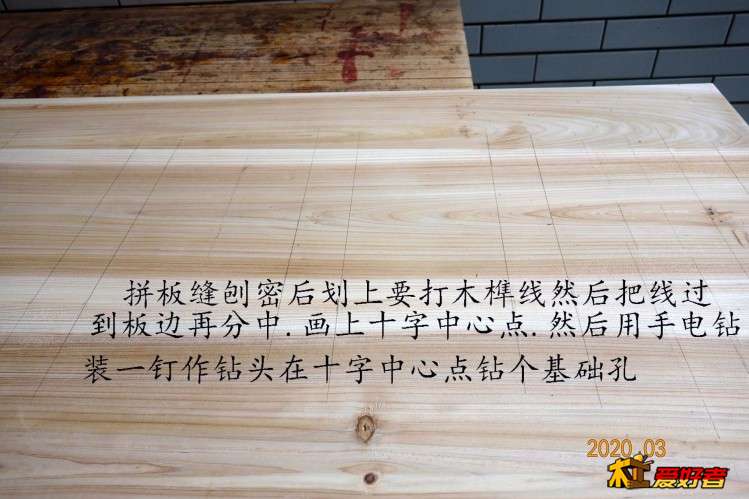 拼板缝刨密后划上要打木榫线然后把线过
到板边再分中.画上十字中心点.然后用手电钻
装一钉作钻头在十字中心点钻个基础孔
2020 03
木工爱好者